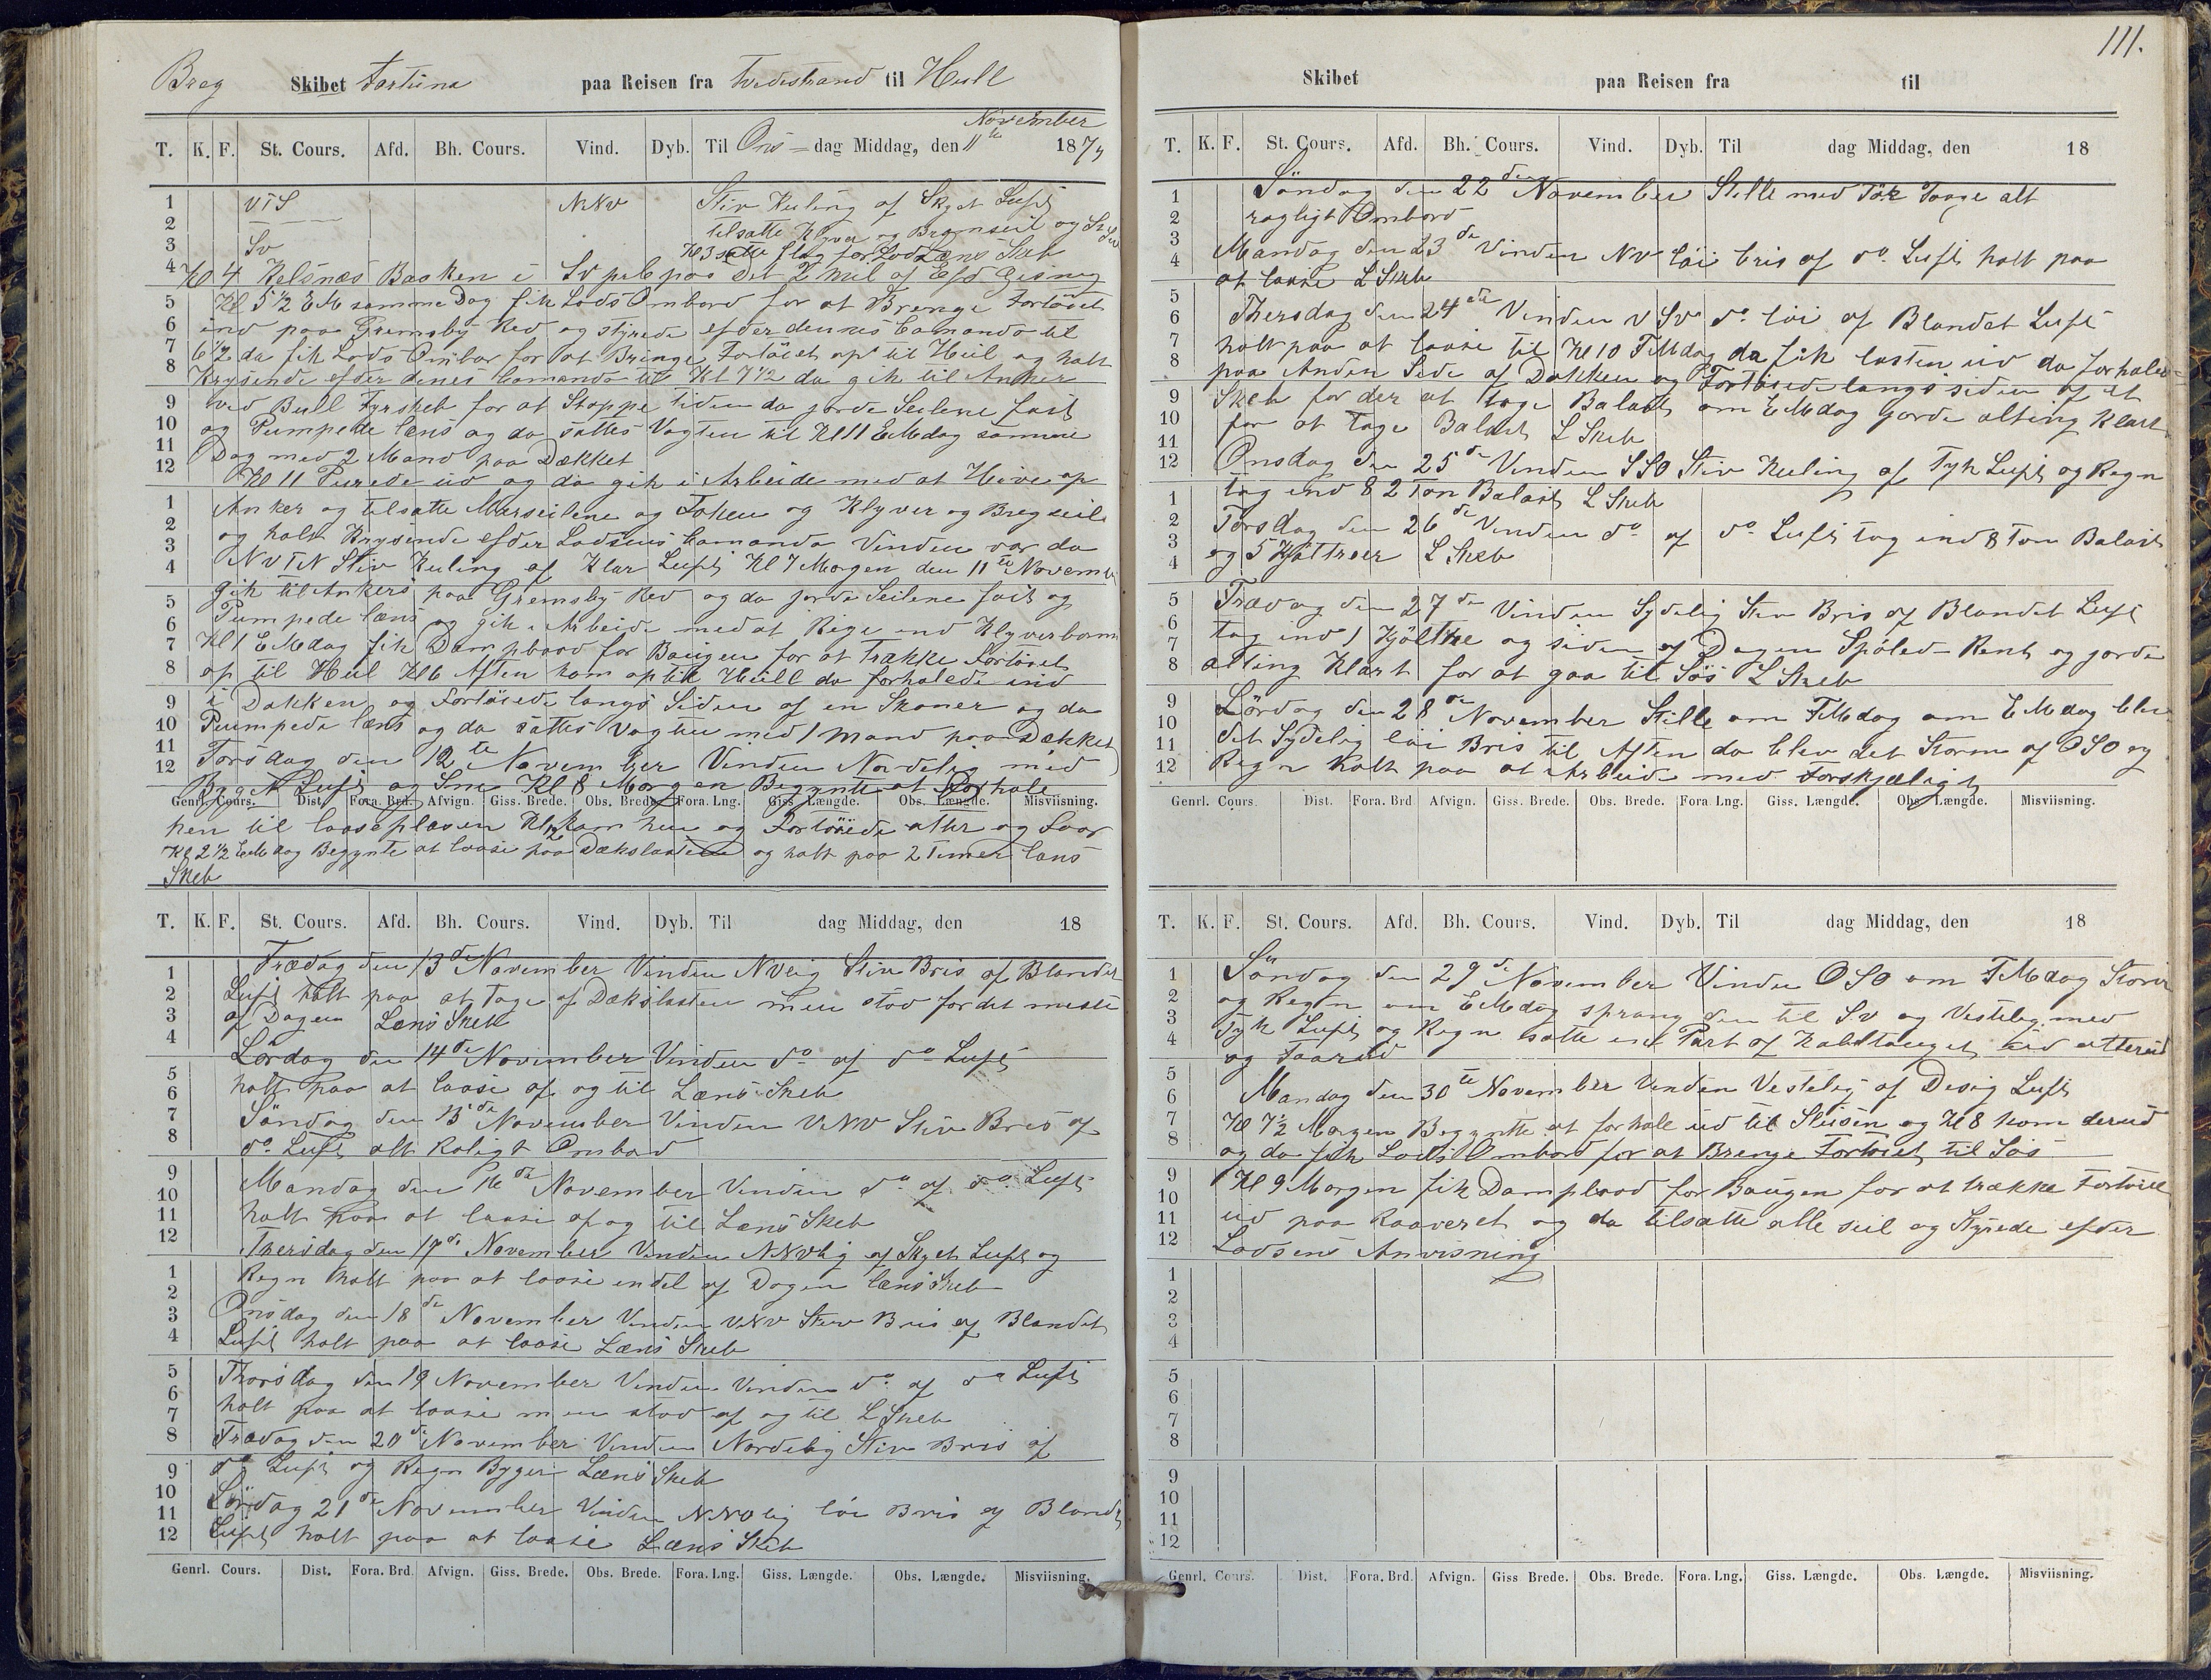 Breg Skibet Fortuna paa Reisen fra Tvedestrand til Hull
T. K. F. St. Cours. Afd. Bh. Cours. Vind. Dyb. Til Ons-dag Middag, den 11te November 1874
VTS NNV Stiv Kuling af Skyet Luft
tilsatte Klyver og Bramseil og
Sv Kl 3 satte flag for Lods Læns Skeb
Kl 4 Kelsnæs Baaken i Sv pr paa det 2 Mil af
Kl 5 1/2 EM samme Dag fik Lods Ombord for at Brenge Fortöiet
ind paa Gremsby Red og styrede efder dennes Comando til
6 1/2 da fik Lods Ombor for at Bringe Fortöiet op til Hul og holt
Krysende efder denes Comando til Kl 7 1/2 da gik til Anker
ved Bull Fyrskeb for at Stoppe tiden da gorde Seilene fast
og Pumpede læns og da sattes Vagten til Kl 11 EMdag samme
Dag med 2 Mand paa Dækket
Kl 11 Purede ud og da gik i Arbeide med at Hive op
Anker og tilsatte Merseilene og Fokken og Klyver og Bregseil
og holt Krysende efder Lodsens Comando Vinden var da
NVTN Stiv Kuling af Klar Luft Kl 7 Morgen den 11te Novemb
gik til Ankers paa Gremsby Red og da gorde Seilene fast og
Pumpede læns og gik i Arbeide med at Rege ind Klyverbomm
Kl 1 EMdag fik Dampbaad for Baugen for at Trække Fortöiet
op til Hul Kl 6 Aften kom op til Hull da forhalede ind
i Dokken og Fortöiede langs Siden af en Skoner og da
Pumpede læns og da sattes Vagten med 1 Mand paa Dækket
Torsdag den 12te November Vinden Nordelig med
Byget Luft og Sne Kl 8 Morgen Begynte at Forhale
Genrl. Cours. Dist. Fora. Brd. Afvign. Giss. Brede. Obs. Brede. Fora. Lng. Giss. Længde. Obs. Længde. Misviisning.
hen til laaseplasen Kl 12 kam hen og Fortöiede atter og
Kl 2 1/2 EMdag Begynte at laase paa Dækslasten og holt paa 2 Timer læns
Skeb
T. K. F. St. Cours. Afd. Bh. Cours. Vind. Dyb. Til dag Middag, den 18
Fredag den 13de November Vinden NVlig Stiv Bris af Blandet
Luft holt paa at Tage af Dækslasten men stod for det meste
af Dagen Læns Skeb
Lördag den 14de November Vinden do af do Luft
holt paa at laase af og til Læns Skeb
Söndag den 15de November Vinden VNV Stiv Bris af
do Luft alt Roligt Ombord
Mandag den 16de November Vinden do af do Luft
holt paa at laase af og til Læns Skeb
Thersdag den 17de November Vinden NNVlig af Skyet Luft og
Regn holt paa at laase endel af Dagen læns Skeb
Onsdag den 18de November Vinden VNV Stiv Bris af Blandet
Luft holt paa at laase Læns Skeb
Thorsdag den 19 November Vinden Vinden do af do Luft
holt paa at laase men stod af og til L Skeb
Fredag den 20de November Vinden Nordelig Stiv Bris af
do Luft og Regn Byger Læns Skeb
Lördag 21de November Vinden NNVlig löi Bris af Blandet
Luft holt paa at laase Læns Skeb
Genrl. Cours. Dist. Fora. Brd. Afvign. Giss. Brede. Obs. Brede. Fora. Lng. Giss. Længde. Obs. Længde. Misviisning.
111.
Skibet paa Reisen fra til
T. K. F. St. Cours. Afd. Bh. Cours. Vind. Dyb. Til dag Middag, den 18
Söndag den 22den November Stille med Tör Taage alt
rogligt Ombord
Mandag den 23de Vinden NV löi bris af do Luft holt paa
at laase L Skeb
Thersdag den 24de Vinden VSV do löi af Blandet Luft
holt paa at laase til Kl 10 FMdag da fik lasten ud da forhaled
paa Anden Side af Dokken og Fortöiede langs siden af et
Skeb for der at tage Balast om EMdag gorde alting klart
for at Tage Balast L Skeb
Onsdag den 25de Vinden SSO Stiv Kuling af Tyk Luft og Regn
tog ind 82 Ton Balast L Skeb
Torsdag den 26de Vinden do af do Luft tog ind 8 Ton Balast
og 5 Kjöttroer L Skeb
Frædag den 27de Vinden Sydelig Stiv Bris af Blandet Luft
tog ind 1 og siden af Dagen Spöled Rent og gorde
alting Klart for at gaa til Sös L Skeb
Lördag den 28de November Stille om FMdag om EMdag blev
det Sydelig löi Bris til Aften da blev det Storm af OSO og
Regn holt paa at Arbeide med Forskjæligt
Genrl. Cours Dist. Fora. Brd Afvign. Giss. Brede. Obs. Brede. Fora Lng. Giss. Længde. Obs. Længde. Misviisning.
T. K. F. St. Cours. Afd. Bh. Cours. Vind. Dyb. Til dag Middag, den 18
Söndag den 29de November Vinden OSO om FMdag Storm
og Regn om EMdag sprang den til Sv og Vestelig med
Tyk Luft og Regn satte en Part af Kabeltauget
og
Mandag den 30te November Vinden Vestelig af Desig Luft
Kl 7 1/2 Morgen Begynte at forhale ud til Slusen og Kl 8 kom derud
og da fik Lods Ombord for at Brenge Fortöiet til Sös
Kl 9 Morgen fik Dampbaad for Baugen for at trække Fortöiet
ud paa Raaveret og da tilsatte alle seil og Styrede efder
Lodsens Anvisning
Genrl. Cours. Dist. Fora. Brd. Afvign. Giss Brede. Obs. Brede. Fora. Lng. Giss. Længde. Obs. Længde. Misviisning.